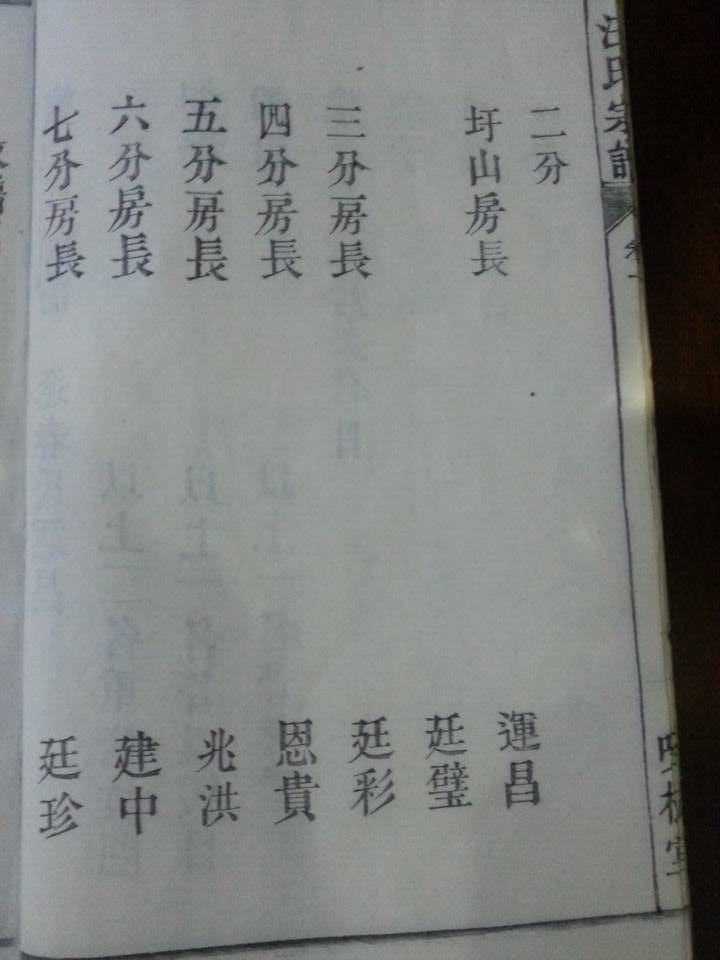 汪氏宗譜
二分
圩山房長 運昌
廷璧
三分房長 廷彩
四分房長 恩貴
五分房長 兆洪
六分房長 建中
七分房長 廷珍